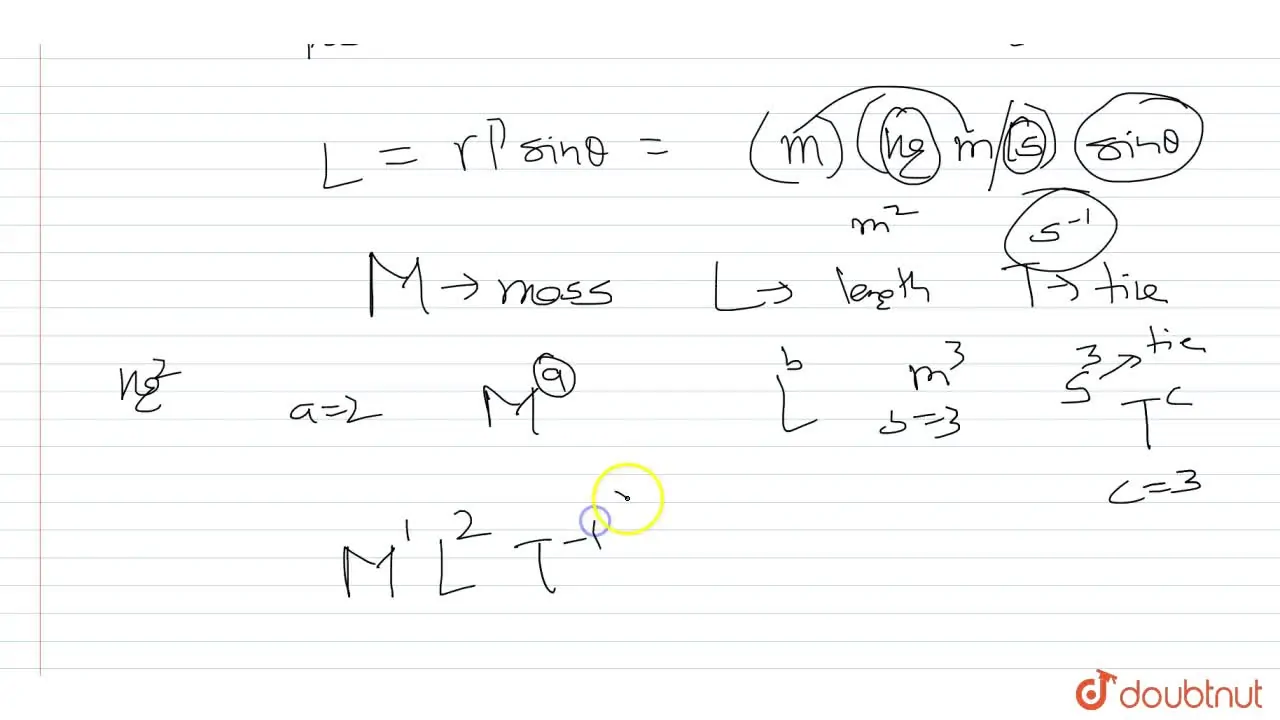 L = rP sinθ = (m) (kg m/s) sinθ
m² s⁻¹
M → mass L → length T → time
kg² a=2 Mᵃ Lᵇ m³ b=3 s³ → time Tᶜ
c=3
M¹ L² T⁻¹
doubtnut